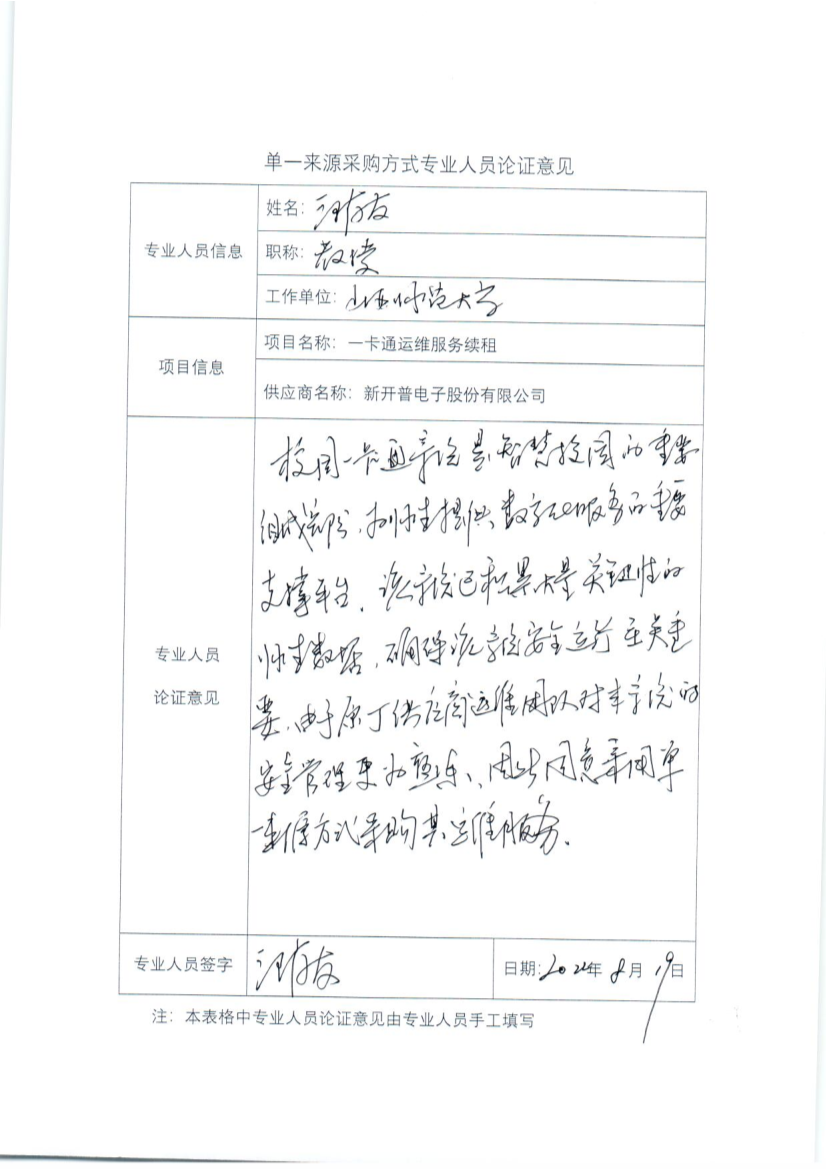 单一来源采购方式专业人员论证意见
专业人员信息
姓名：汪存友
职称：教授
工作单位：山西师范大学
项目信息
项目名称：一卡通运维服务续租
供应商名称：新开普电子股份有限公司
专业人员
论证意见
校园一卡通系统是智慧校园的重要
组成部分，为师生提供数字化服务的重要
支撑平台，该系统已积累大量关键性的
师生数据，确保该系统安全运行至关重
要。由于原厂供应商运维团队对本系统的
安全管理更为熟练、因此同意采用单
一来源方式采购其运维服务。
专业人员签字
汪存友
日期：2024年8月19日
注：本表格中专业人员论证意见由专业人员手工填写